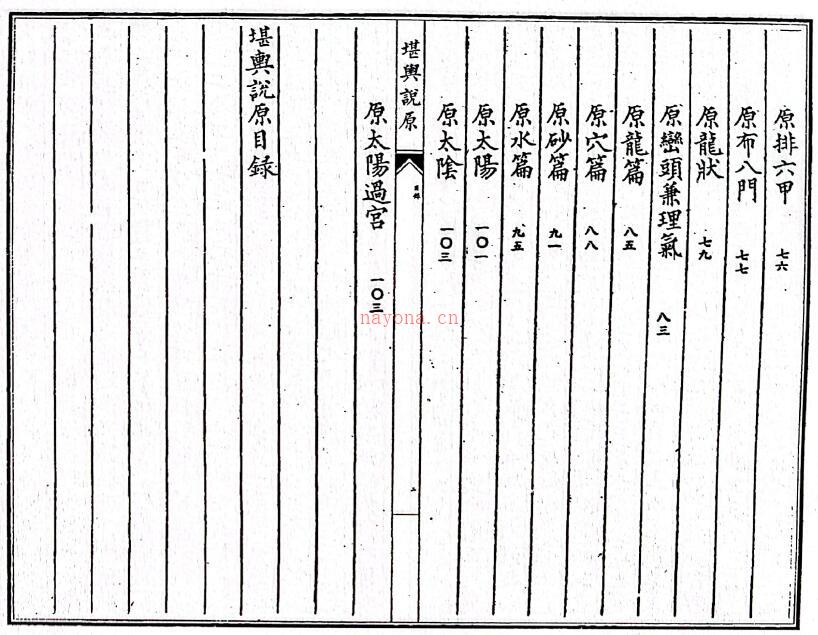 原排六甲 七六
原布八門 七七
原龍狀 七九
原巒頭兼理氣 八三
原龍篇 八五
原穴篇 八八
原砂篇 九一
原水篇 九五
原太陽 一〇一
原太陰 一〇三
堪輿說原 目錄 二
原太陽過宮 一〇三
堪輿說原目錄
nayona.cn